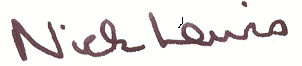 Nick Lewis